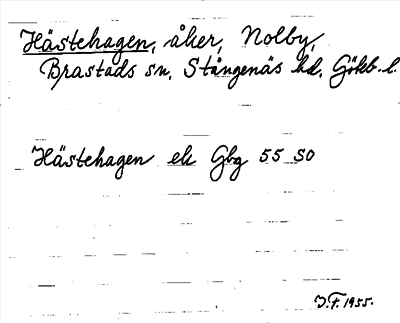 Hästehagen, åker, Nolby,
Brastads sn, Stångenäs hd, Gökb. l.
Hästehagen ek Gbg 55 SO
J.F. 1955.